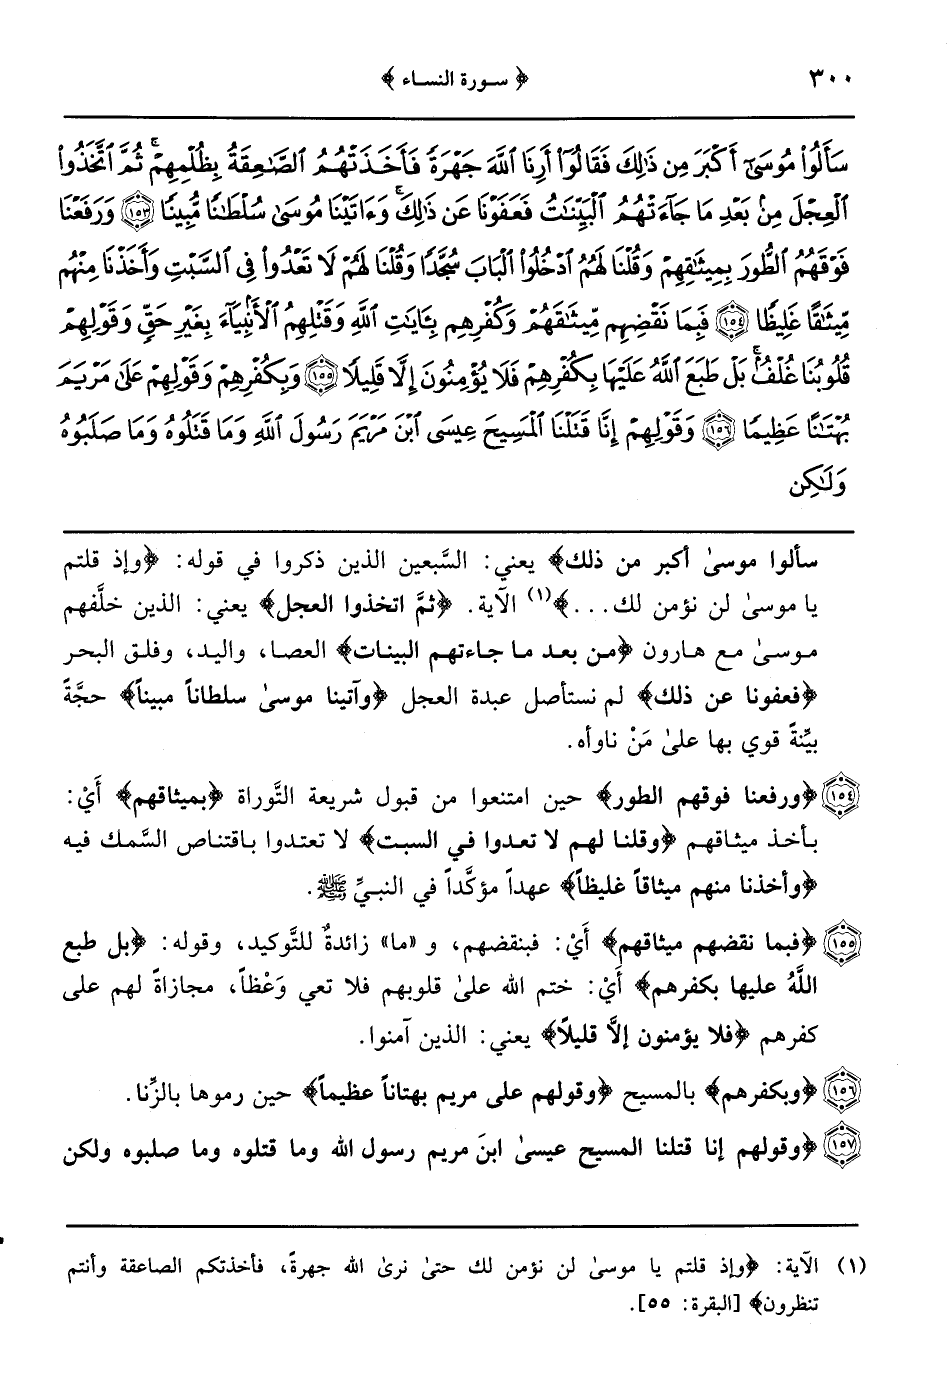 ٣٠٠ ﴿ سورة النساء ﴾
سَأَلُوا۟ مُوسَىٰٓ أَكْبَرَ مِن ذَٰلِكَ فَقَالُوٓا۟ أَرِنَا ٱللَّهَ جَهْرَةً فَأَخَذَتْهُمُ ٱلصَّٰعِقَةُ بِظُلْمِهِمْ ۚ ثُمَّ ٱتَّخَذُوا۟
ٱلْعِجْلَ مِنۢ بَعْدِ مَا جَآءَتْهُمُ ٱلْبَيِّنَٰتُ فَعَفَوْنَا عَن ذَٰلِكَ ۚ وَءَاتَيْنَا مُوسَىٰ سُلْطَٰنًا مُّبِينًا ﴿١٥٣﴾ وَرَفَعْنَا
فَوْقَهُمُ ٱلطُّورَ بِمِيثَٰقِهِمْ وَقُلْنَا لَهُمُ ٱدْخُلُوا۟ ٱلْبَابَ سُجَّدًا وَقُلْنَا لَهُمْ لَا تَعْدُوا۟ فِى ٱلسَّبْتِ وَأَخَذْنَا مِنْهُم
مِّيثَٰقًا غَلِيظًا ﴿١٥٤﴾ فَبِمَا نَقْضِهِم مِّيثَٰقَهُمْ وَكُفْرِهِم بِـَٔايَٰتِ ٱللَّهِ وَقَتْلِهِمُ ٱلْأَنۢبِيَآءَ بِغَيْرِ حَقٍّ وَقَوْلِهِمْ
قُلُوبُنَا غُلْفٌۢ ۚ بَلْ طَبَعَ ٱللَّهُ عَلَيْهَا بِكُفْرِهِمْ فَلَا يُؤْمِنُونَ إِلَّا قَلِيلًا ﴿١٥٥﴾ وَبِكُفْرِهِمْ وَقَوْلِهِمْ عَلَىٰ مَرْيَمَ
بُهْتَٰنًا عَظِيمًا ﴿١٥٦﴾ وَقَوْلِهِمْ إِنَّا قَتَلْنَا ٱلْمَسِيحَ عِيسَى ٱبْنَ مَرْيَمَ رَسُولَ ٱللَّهِ وَمَا قَتَلُوهُ وَمَا صَلَبُوهُ
وَلَٰكِن
سألوا موسىٰ أكبر من ذلك﴾ يعني: السَّبعين الذين ذكروا في قوله: ﴿وإذ قلتم
يا موسىٰ لن نؤمن لك...﴾(١) الآية. ﴿ثمَّ اتخذوا العجل﴾ يعني: الذين خلَّفهم
موسىٰ مع هارون ﴿من بعد ما جاءتهم البينات﴾ العصا، واليد، وفلق البحر
﴿فعفونا عن ذلك﴾ لم نستأصل عبدة العجل ﴿وآتينا موسىٰ سلطاناً مبيناً﴾ حجَّةً
بيِّنةً قوي بها علىٰ مَنْ ناوأه.
﴿١٥٤﴾ ﴿ورفعنا فوقهم الطور﴾ حين امتنعوا من قبول شريعة التَّوراة ﴿بميثاقهم﴾ أَيْ:
بأخذ ميثاقهم ﴿وقلنا لهم لا تعدوا في السبت﴾ لا تعتدوا باقتناص السَّمك فيه
﴿وأخذنا منهم ميثاقاً غليظاً﴾ عهداً مؤكَّداً في النبيِّ ﷺ.
﴿١٥٥﴾ ﴿فبما نقضهم ميثاقهم﴾ أَيْ: فبنقضهم، و «ما» زائدةٌ للتَّوكيد، وقوله: ﴿بل طبع
اللَّهُ عليها بكفرهم﴾ أَيْ: ختم الله علىٰ قلوبهم فلا تعي وَعْظاً، مجازاةً لهم على
كفرهم ﴿فلا يؤمنون إلَّا قليلاً﴾ يعني: الذين آمنوا.
﴿١٥٦﴾ ﴿وبكفرهم﴾ بالمسيح ﴿وقولهم على مريم بهتاناً عظيماً﴾ حين رموها بالزِّنا.
﴿١٥٧﴾ ﴿وقولهم إنا قتلنا المسيح عيسىٰ ابنَ مريم رسول الله وما قتلوه وما صلبوه ولكن
(١) الآية: ﴿وإذ قلتم يا موسىٰ لن نؤمن لك حتىٰ نرىٰ الله جهرةً، فأخذتكم الصاعقة وأنتم
تنظرون﴾ [البقرة: ٥٥].